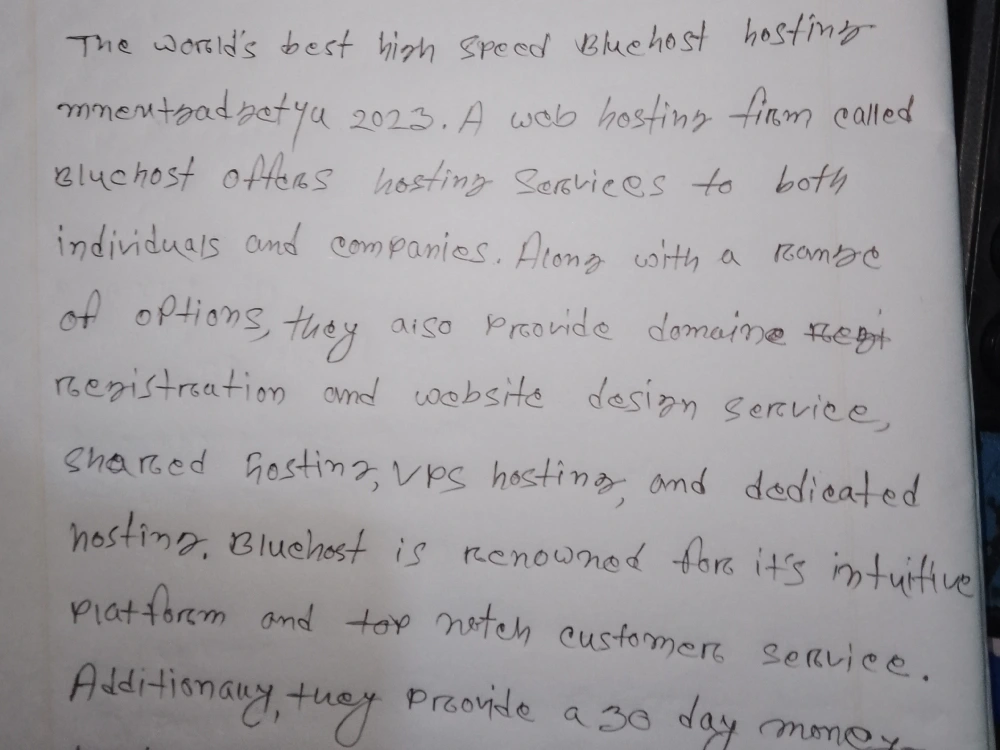 The world's best high speed Bluehost hosting
2023. A web hosting firm called
Bluehost offers hosting services to both
individuals and companies. Along with a range
of options, they also provide domaine
registration and website design service,
shared hosting, VPS hosting, and dedicated
hosting. Bluehost is renowned for it's intuitive
platform and top notch customer service.
Additionally, they provide a 30 day money